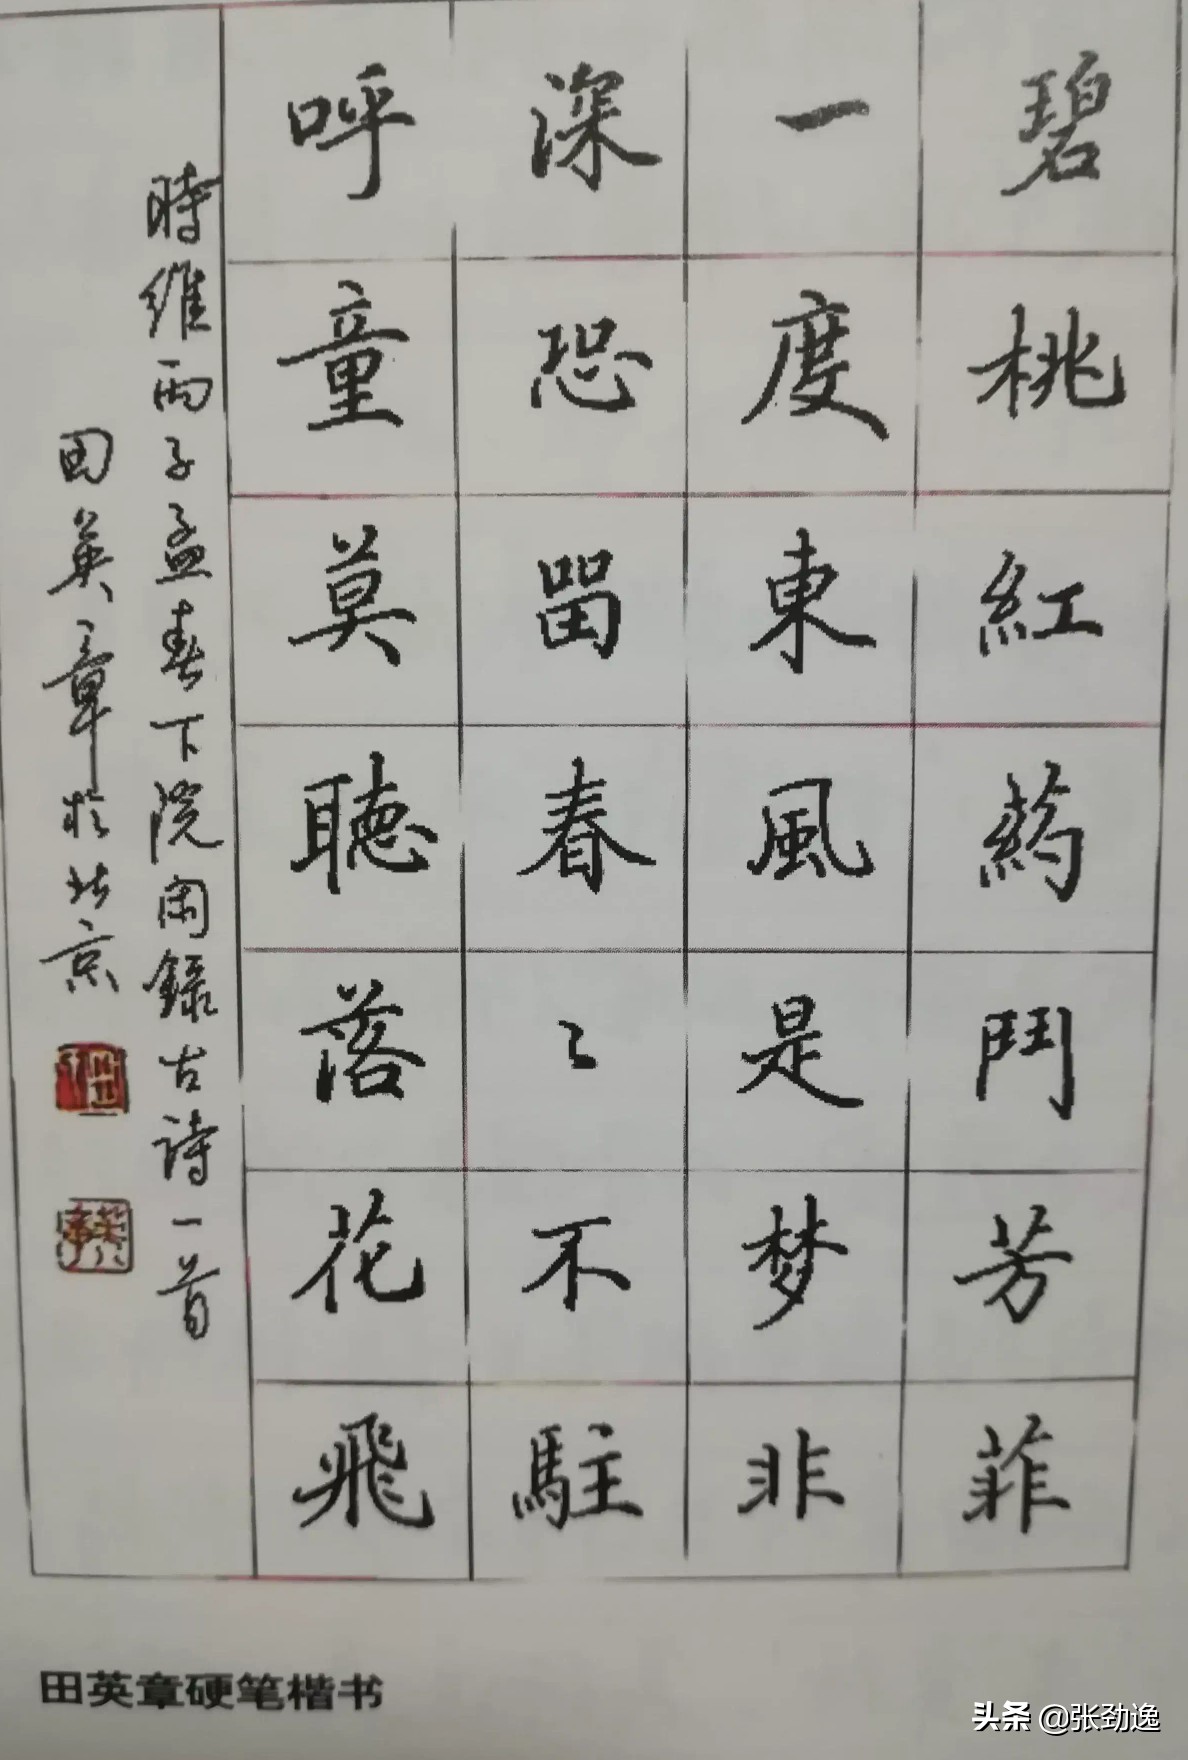 碧桃紅葯鬥芳菲
一度東風是梦非
深恐畱春〻不駐
呼童莫聴落花飛
時維丙子孟春下浣閑錄古詩一首
田英章於北京
田英章硬笔楷书
头条 @张劲逸